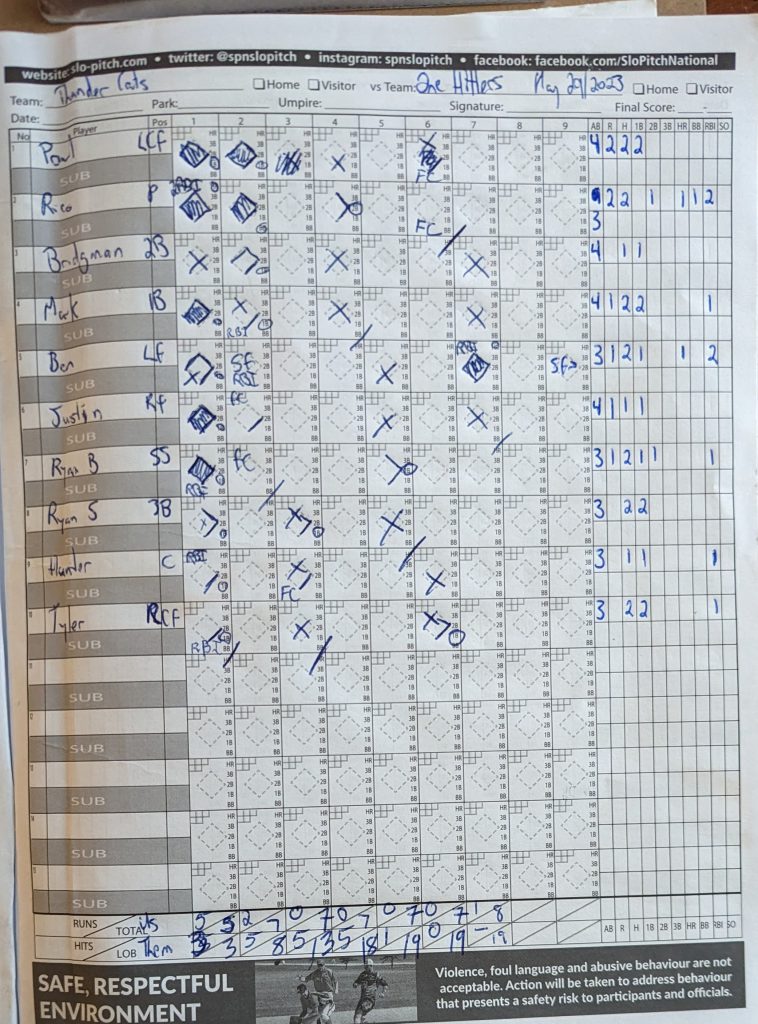 website: slo-pitch.com • twitter: @spnslopitch • instagram: spnslopitch • facebook: facebook.com/SloPitchNational
Team: Thunder Cats Home Visitor vs Team: One Hitters May 29/2023 Home Visitor
Date: Park: Umpire: Signature: Final Score: -
No Player Pos 1 2 3 4 5 6 7 8 9 AB R H 1B 2B 3B HR BB RBI SO
1 Paul LCF FC 4 2 2 2
SUB
2 Rico P 2RBI FC 2 2 1 1 1 2
SUB 3
3 Bridgman 2B 4 1 1
SUB
4 Mark 1B RBI 4 1 2 2 1
SUB
5 Ben LF SF RBI RBI SF 3 1 2 1 1 2
SUB
6 Justin RF FC 4 1 1 1
SUB
7 Ryan B SS RBI FC 3 1 2 1 1 1
SUB
8 Ryan S 3B 3 2 2
SUB
9 Hunter C RBI FC 3 1 1 1
SUB
10 Tyler RCF RBI 3 2 2 1
SUB
11
SUB
12
SUB
13
SUB
14
SUB
15
SUB
RUNS TOTAL Us 5 5 2 7 0 7 0 7 0 7 0 7 1 8
HITS LOB Them 3 3 5 8 5 13 5 18 1 19 0 19 - 19
AB R H 1B 2B 3B HR BB RBI SO
SAFE, RESPECTFUL
ENVIRONMENT
Violence, foul language and abusive behaviour are not
acceptable. Action will be taken to address behaviour
that presents a safety risk to participants and officials.